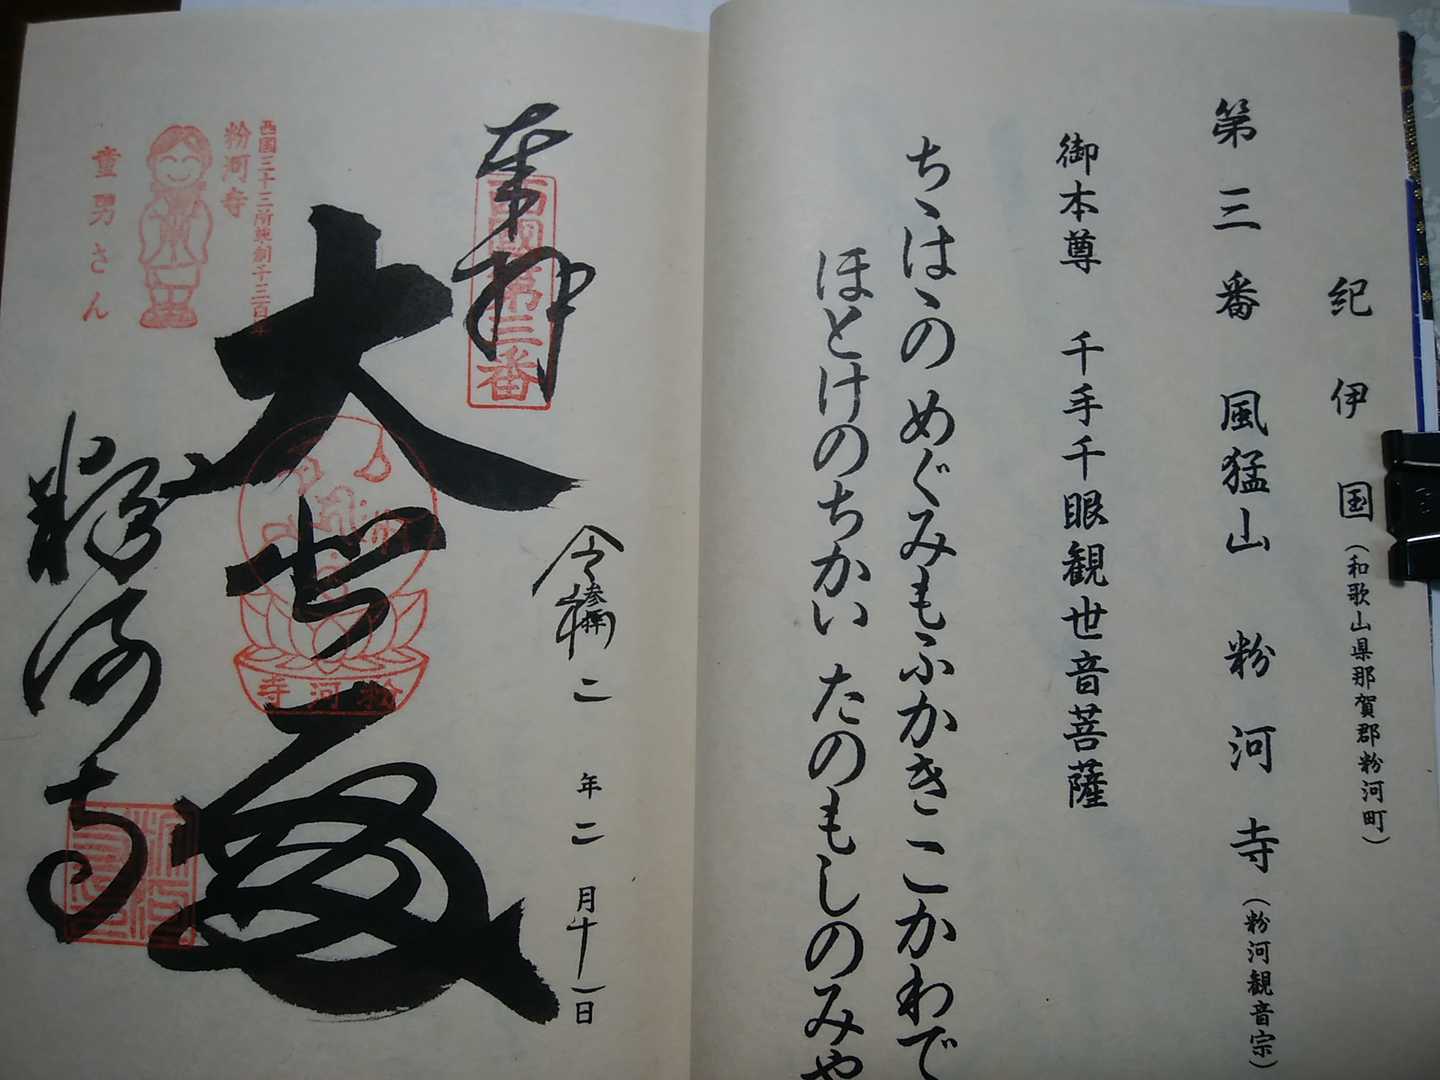 紀伊国(和歌山県那賀郡粉河町)
第三番 風猛山 粉河寺(粉河観音宗)
御本尊 千手千眼観世音菩薩
ちゝはゝの めぐみもふかき こかわで
ほとけのちかい たのもしのみや
奉拝
西國第三番
令和二年二月十一日
参拝
大悲殿
粉河寺
西国三十三所草創千三百年
粉河寺
童男さん
粉河寺